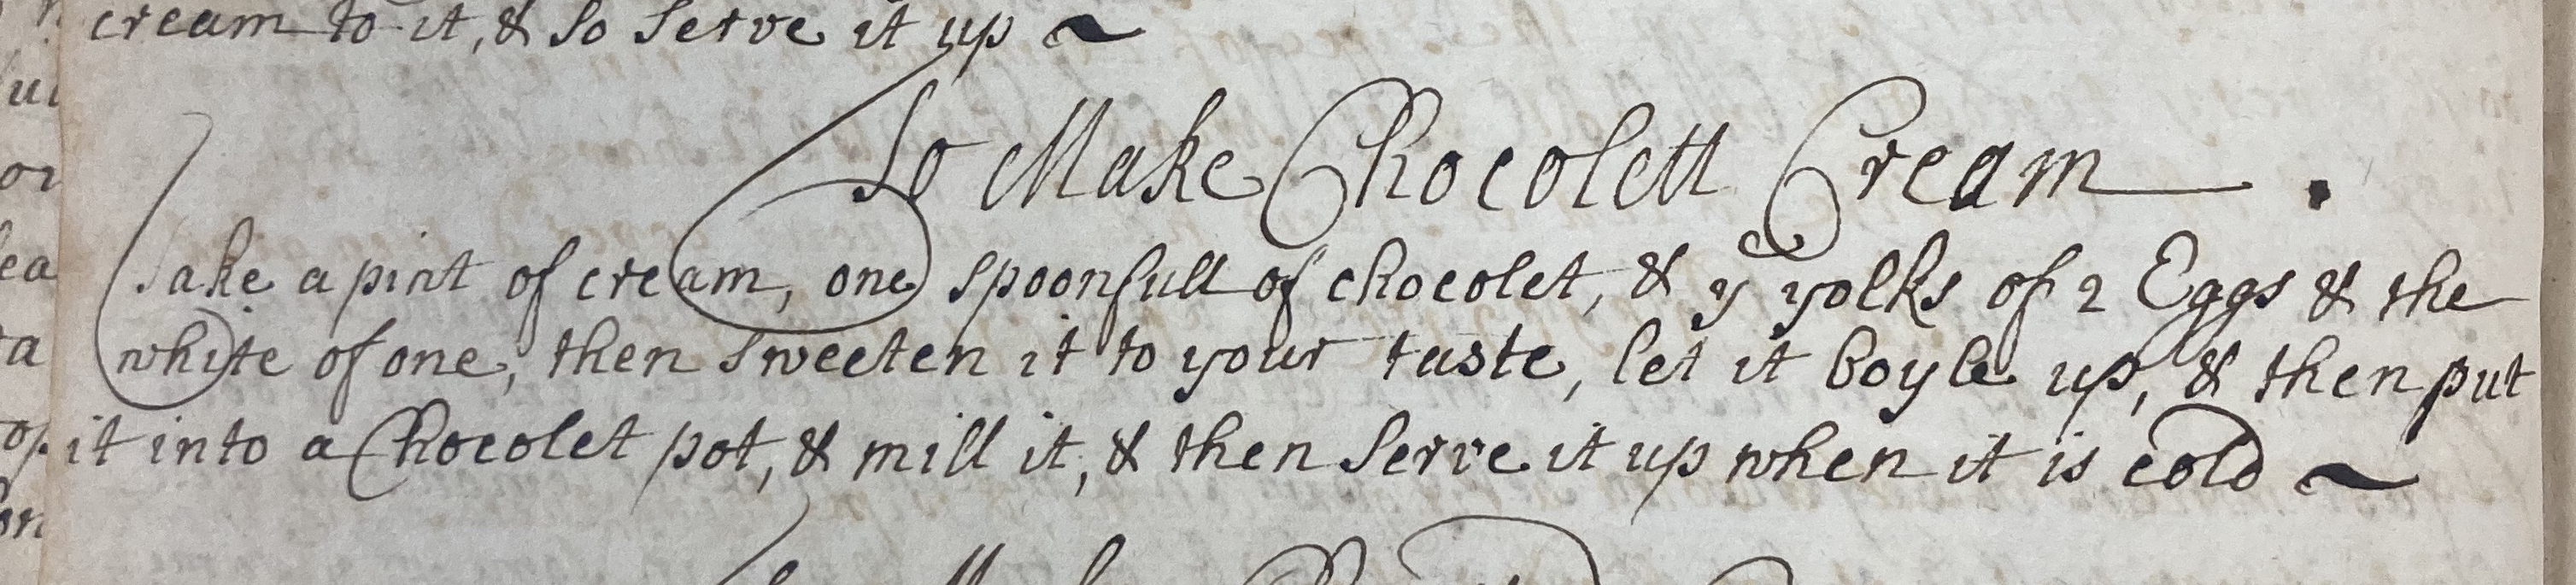 cream to it, & so serve it up ~
To Make Chocolett Cream .
Take a pint of cream, one spoonfull of chocolet, & y yolks of 2 Eggs & the
white of one, then sweeten it to your taste, let it boyle up, & then put
it into a Chocolet pot, & mill it, & then serve it up when it is cold ~